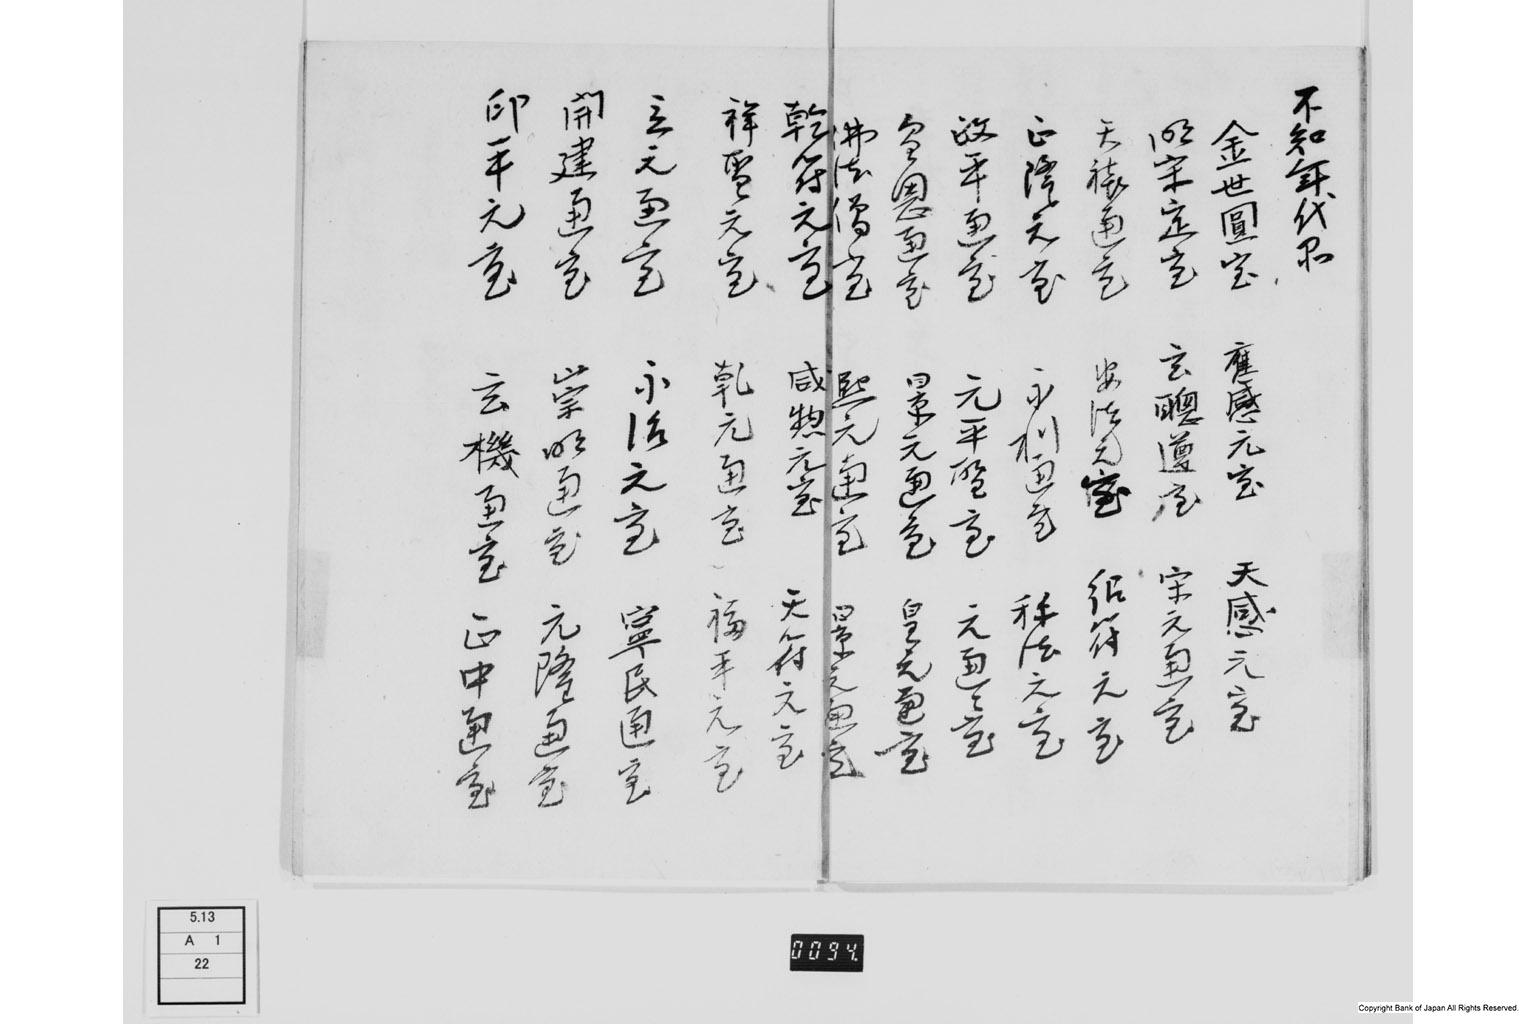 不知年代品
金世圓宝 應感元宝 天感元宝
明宋定宝 玄聰遵宝 宋元通宝
天禄通宝 安法元宝 紹符元宝
正隆元宝 永利通宝 稱法元宝
政平通宝 元平 宝 元通通宝
恩通宝 景元通宝 皇元通宝
佛法僧宝 熙元通宝 景元通宝
乾符元宝 咸 元宝 天符元宝
祥聖元宝 乾元通宝 福平元宝
立元通宝 永治元宝 寧民通宝
開建通宝 崇明通宝 元隆通宝
印平元宝 玄機通宝 正中通宝
5.13
A 1
22
0094.
Copyright Bank of Japan All Rights Reserved.